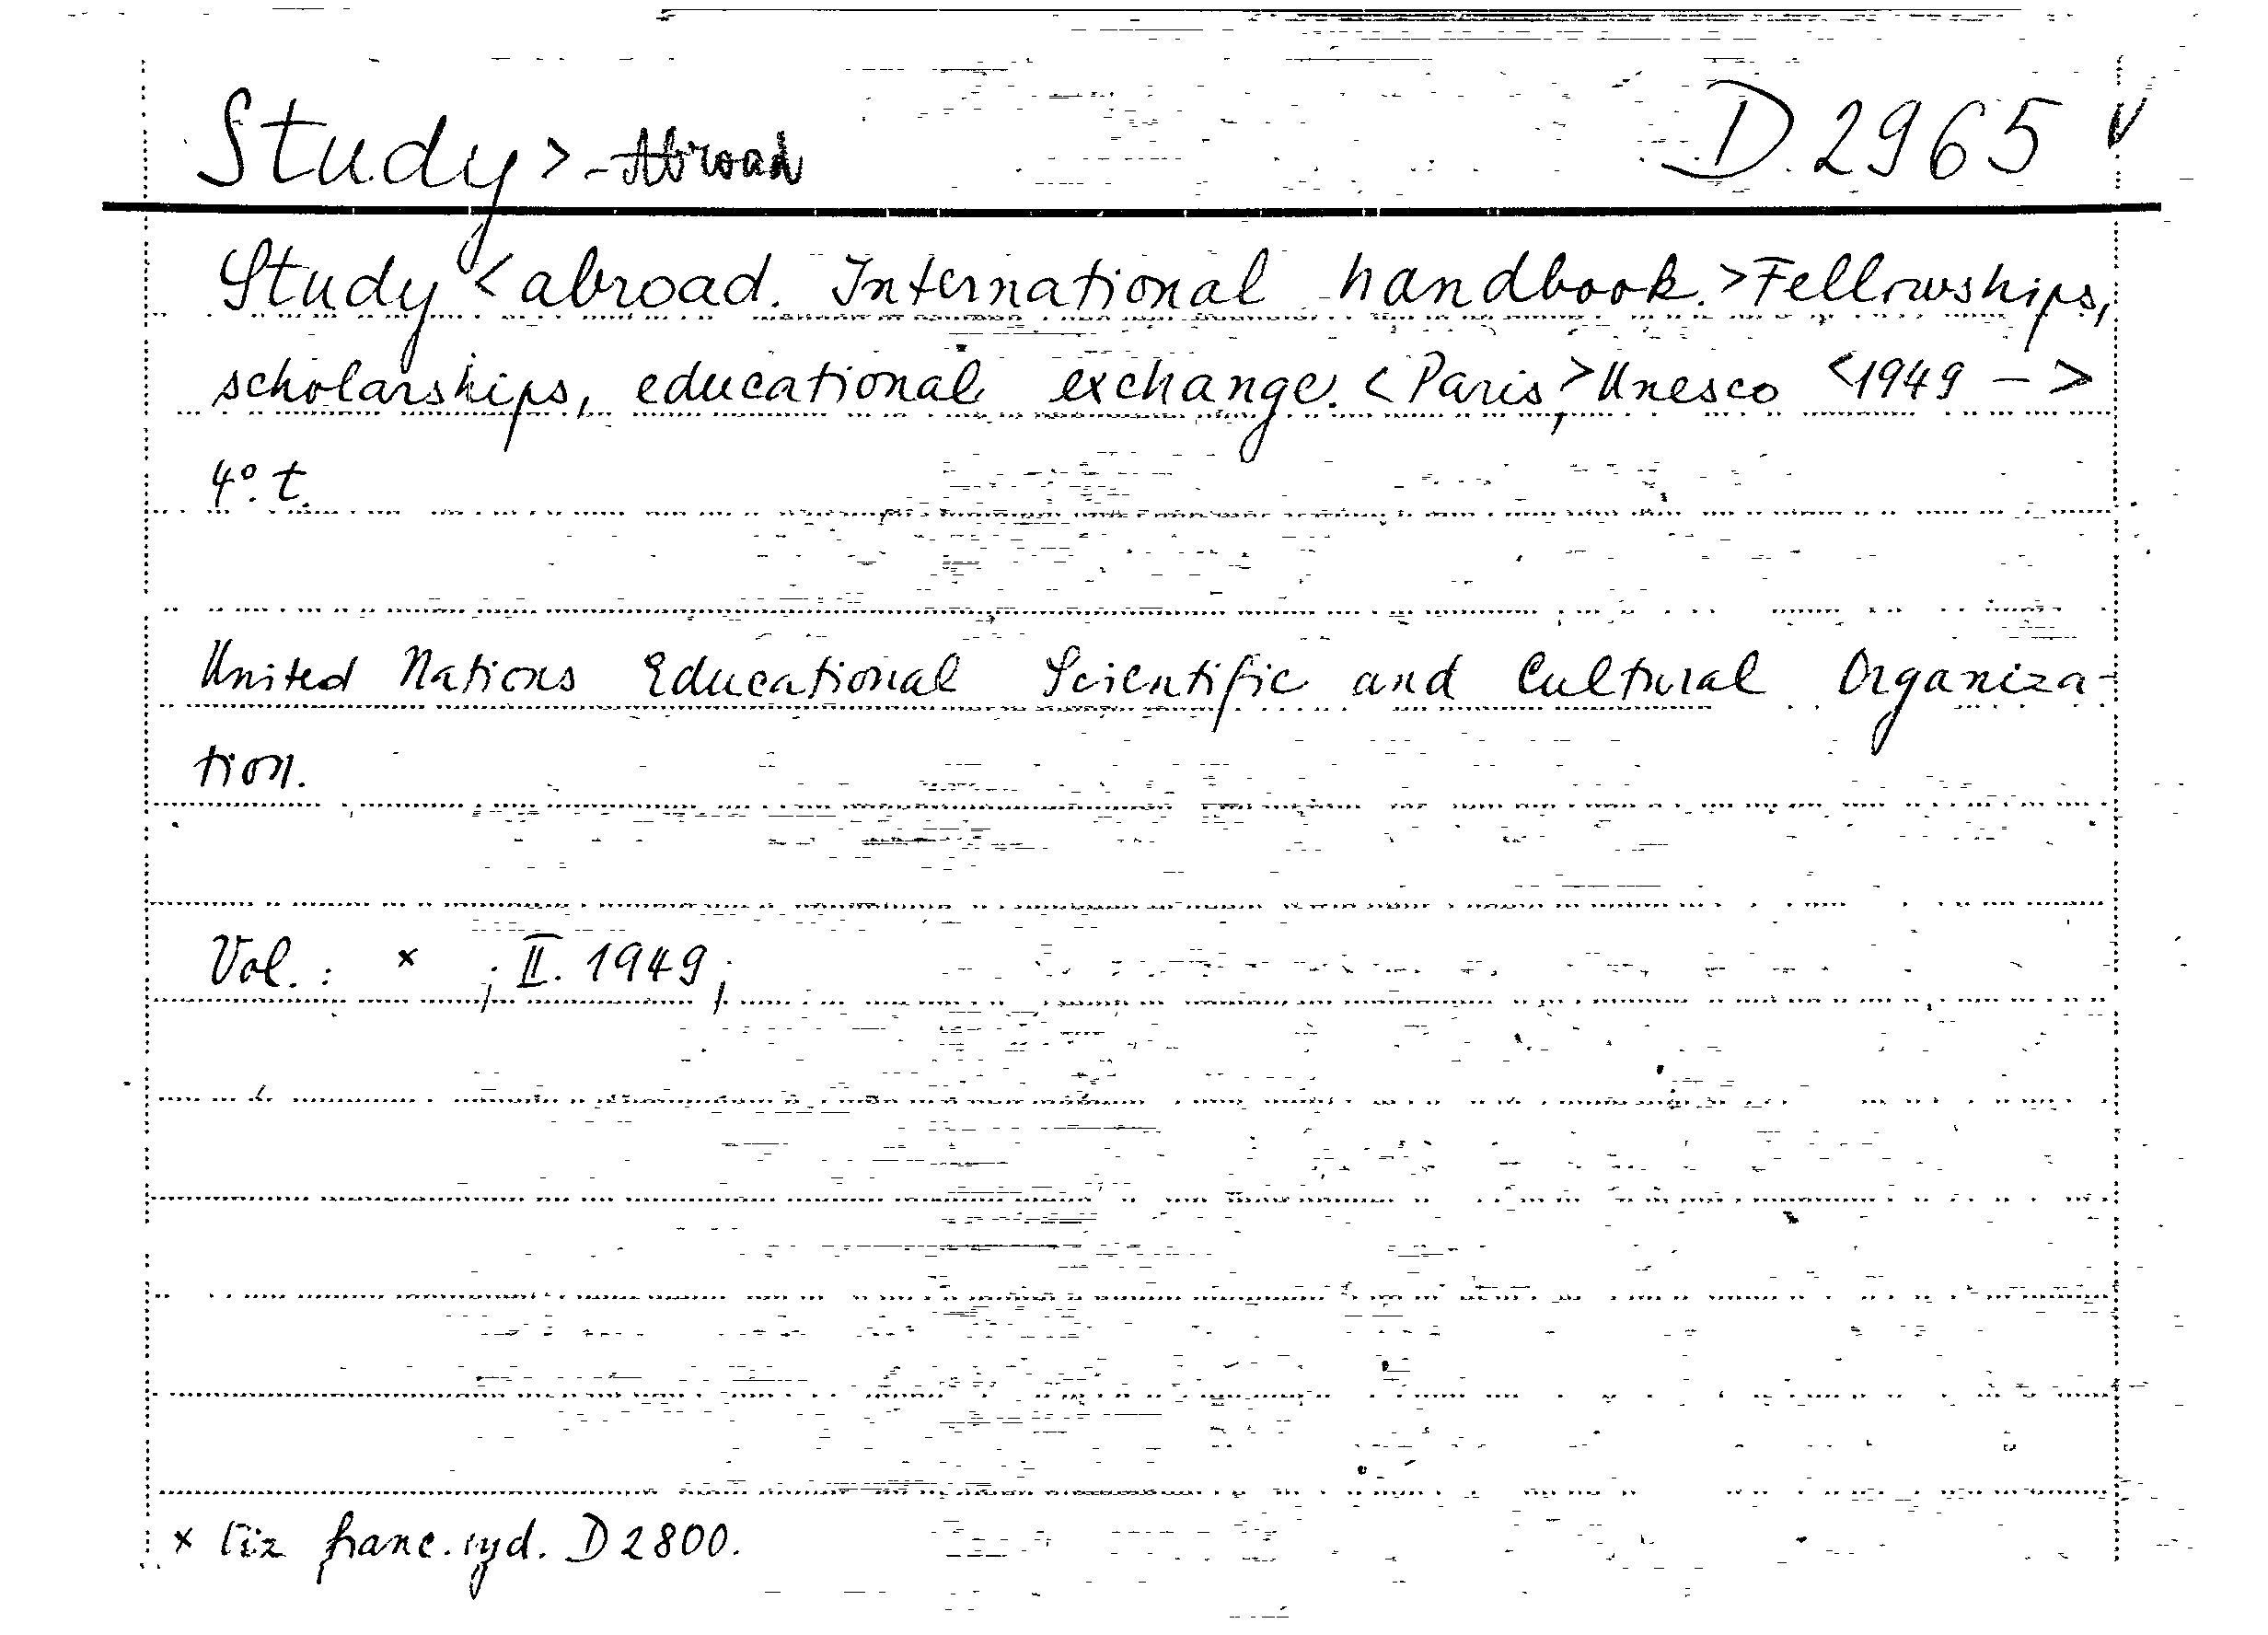 Study > - Abroad D.2965 v
Study < abroad. International handbook. > Fellowships,
scholarships, educational exchange. < Paris, > Unesco < 1949 - >
4°. t.
United Nations Educational Scientific and Cultural Organiza-
tion.
Vol. : × ; II. 1949;
× viz franc. vyd. D 2800.